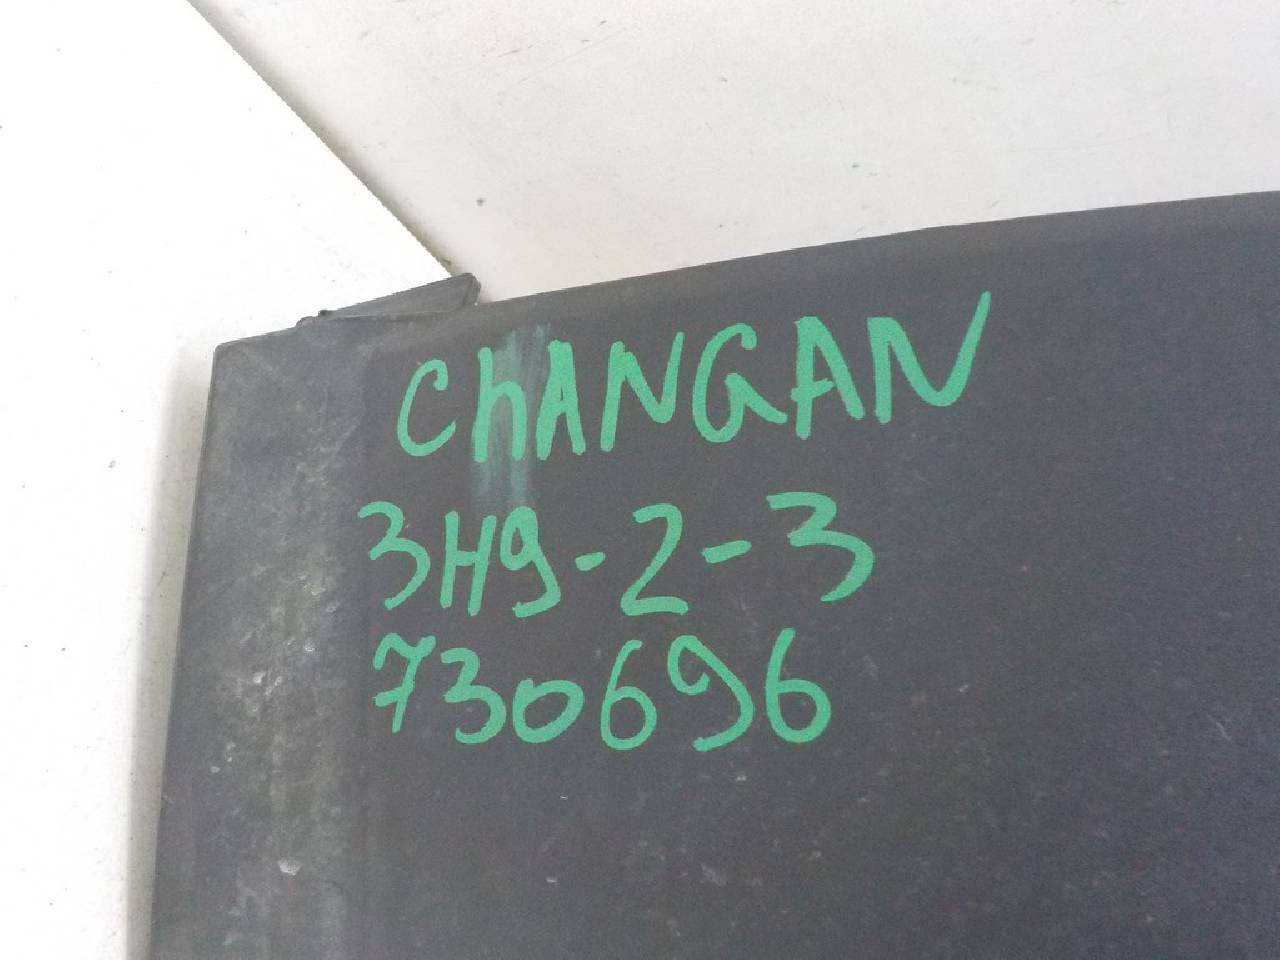 ChANGAN
3H9-2-3
730696